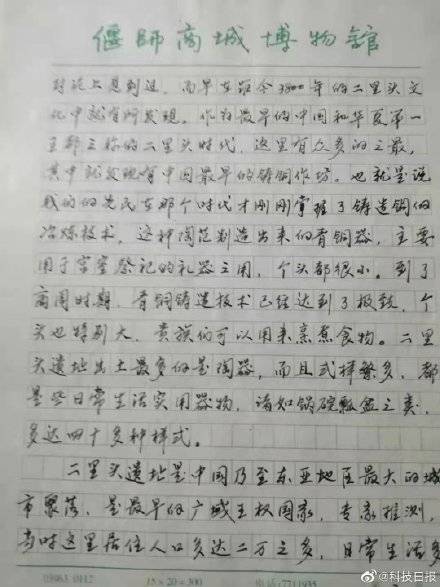 偃師商城博物館
时记上追到追，而早在距今3800年的二里头文
化中就有所发现。作为最早的中国和华夏第一
王都之称的二里头时代，这里有众多的之最，
其中就发现有中国最早的铸铜作坊。也就是说
我们的先民在那个时代才刚刚掌握了铸造铜的
冶炼技术，这种陶范制造出来的青铜器，主要
用于宫室祭祀的礼器之用，个头都很小。到了
商周时期，青铜铸造技术已经达到了极致，个
头也特别大，贵族们可以用来烹煮食物。二里
头遗址出土最多的是陶器，而且式样繁多，都
是些日常生活实用器物，诸如锅碗瓢盆之类，
多达四十多种样式。
二里头遗址是中国乃至东亚地区最大的城
市聚落，是最早的广域王权国家，专家推测，
当时这里居住人口多达二万之多，日常生活多
15×20=300
电话:7711935
@科技日报